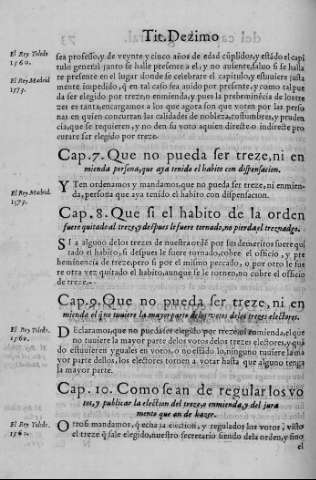 Tit. Dezimo
El Rey Toledo
1560.
sea professo, y de veynte y cinco años de edad cūplidos, y estādo el capi
tulo general junto se halle presente a el, y no ausente, saluo si se halla
El Rey. Madrid
1573.
re presente en el lugar donde se celebrare el capitulo, y estuuiere justa
mente impedido, q̄ en tal caso assi no pueda auer, como para ser ocupa
da ser elegido por treze, o enmienda, y pues la preheminēcia de los tre
zes es tanta, encargamos a los que agora son que voten por las perso
nas en quien concurran las calidades de nobleza, costumbres, y pruden
cia, que se requieren, y no den su voto a quien directe o indirecte pro
curare ser elegido por si, o por otro.
Cap. 7. Que no pueda ser treze, ni en
mienda persona, que aya tenido el habito con dispensacion.
El Rey. Madrid.
1573.
Y Ten ordenamos y mandamos, que no pueda ser treze, ni enmien
da, persona que aya tenido el habito con dispensacion.
Cap. 8. Que si el habito de la orden
fuere quitado al treze, y despues le fuere tornado, no pierda el treznadgo.
SI a alguno delos trezes de nuestra ordē por sus demeritos fuere qui
tado el habito, si despues le fuere tornado, cobre el officio, y pre
heminēcia de treze, pero si por el mismo peccado, o por otro le fue
re otra vez quitado el habito, aunque se le torne, no cobre el officio
de treze.
Cap. 9. Que no pueda ser treze, ni en
mienda el q̄ no tuuiere la mayor parte delos votos delos trezes electores.
El Rey Toledo.
1560.
DEclaramos, que no pueda ser elegido por treze, ni enmienda, el que
no tuuiere la mayor parte delos votos delos trezes electores, y quā
do estuuieren yguales en votos, o no estādo lo, ninguno tuuiere la ma
yor parte dellos, los electores tornen a votar hasta que alguno tenga
la mayor parte.
Cap. 10. Como se an de regular los vo
tos, y publicar la election del treze, o enmienda, y del jura
mento que an de hazer.
El Rey Toledo.
1560.
OTrosi mandamos, q̄ echa la election, y regulados los votos, visto
el treze q̄ sale elegido, nuestro secretario siendo dela orden, y sino
el